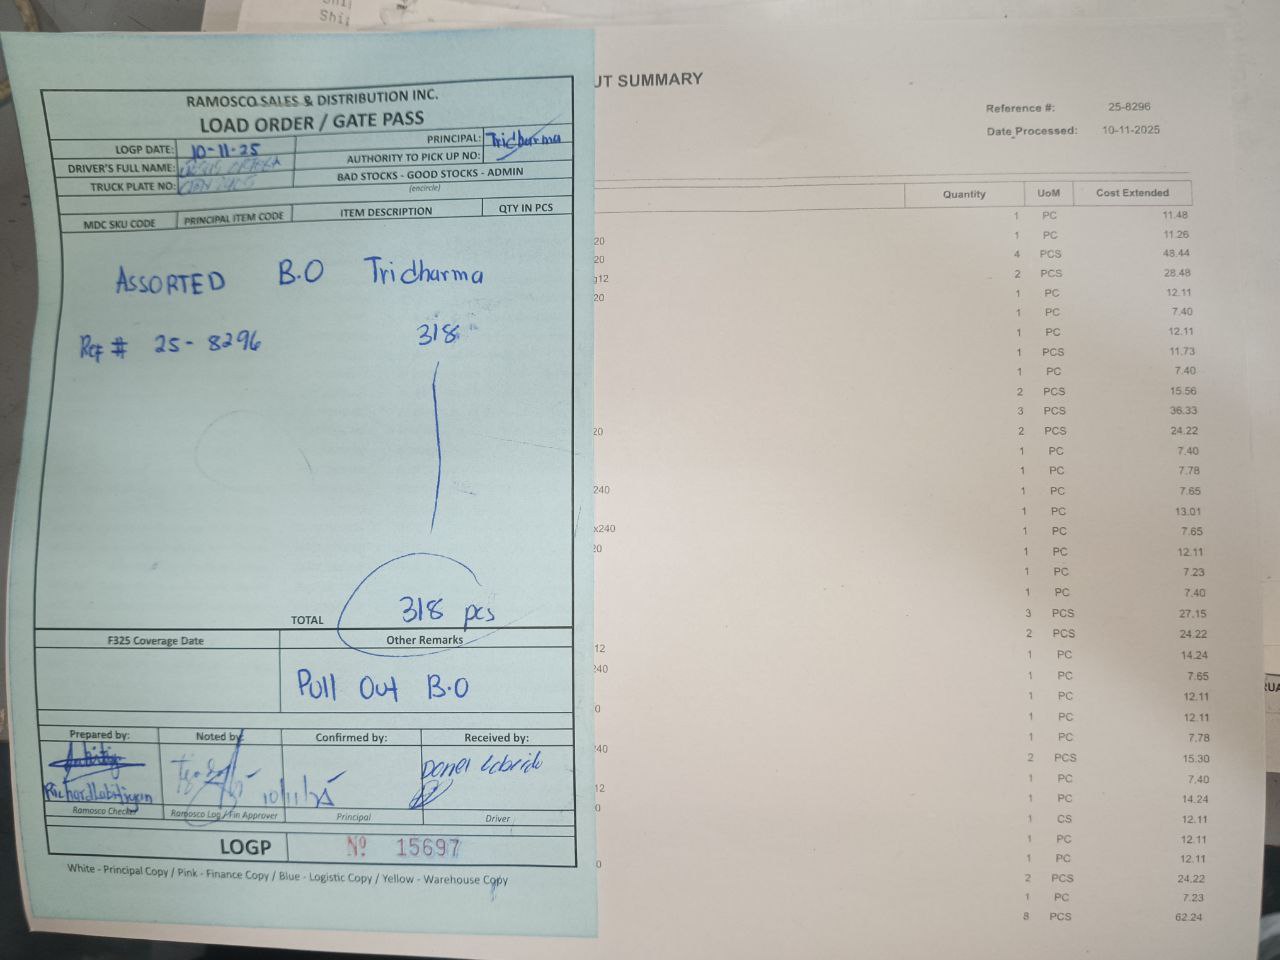 Shi
RAMOSCO SALES & DISTRIBUTION INC.
LOAD ORDER / GATE PASS
LOGP DATE: 10-11-25
PRINCIPAL: Tridharma
DRIVER'S FULL NAME:
AUTHORITY TO PICK UP NO:
TRUCK PLATE NO:
BAD STOCKS - GOOD STOCKS - ADMIN
(encircle)
MDC SKU CODE PRINCIPAL ITEM CODE ITEM DESCRIPTION QTY IN PCS
ASSORTED B.O Tridharma
Ref # 25-8296 318
TOTAL 318 pcs
F325 Coverage Date Other Remarks
Pull Out B.O
Prepared by: Noted by: Confirmed by: Received by:
10/11/25
Ramosco Checker Ramosco Log / Fin Approver Principal Driver
LOGP Nº 15697
White - Principal Copy / Pink - Finance Copy / Blue - Logistic Copy / Yellow - Warehouse Copy
UT SUMMARY
Reference #: 25-8296
Date_Processed: 10-11-2025
Quantity UoM Cost Extended
1 PC 11.48
20 1 PC 11.26
20 4 PCS 48.44
g12 2 PCS 28.48
20 1 PC 12.11
1 PC 7.40
1 PC 12.11
1 PCS 11.73
1 PC 7.40
2 PCS 15.56
3 PCS 36.33
20 2 PCS 24.22
1 PC 7.40
1 PC 7.78
240 1 PC 7.65
1 PC 13.01
x240 1 PC 7.65
20 1 PC 12.11
1 PC 7.23
1 PC 7.40
3 PCS 27.15
2 PCS 24.22
12 1 PC 14.24
240 1 PC 7.65
1 PC 12.11
0 1 PC 12.11
1 PC 7.78
40 2 PCS 15.30
1 PC 7.40
12 1 PC 14.24
0 1 CS 12.11
1 PC 12.11
1 PC 12.11
0 2 PCS 24.22
1 PC 7.23
8 PCS 62.24
RUA